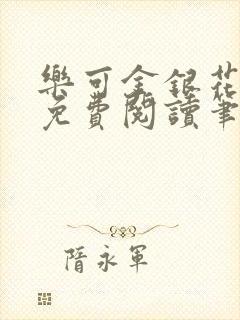 樂可金銀花
免費閱讀筆
隋永軍